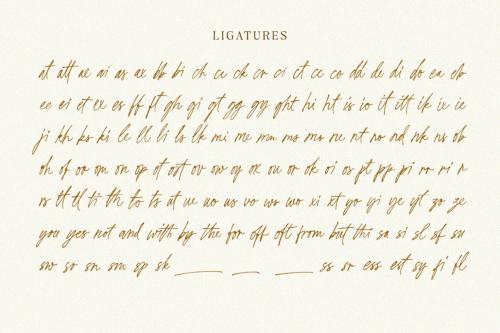 LIGATURES
at att ae ai as ax bb bi ch cu ck cr ci ct cc co dd de di do ea eb
ee ei et ex es ff ft gh gi gt gg gy ght hi ht is io it itt ik ix ie
ji kh ks ki le ll li ls lk mi me mm ms mo ne nt no nd nk ns ob
oh of oo om on op ot ott ov ow oy ox ou or ok oi os pt pp pi ro ri
rs tt tl ti th to ts at ue uo us vo ws wo xi xt yo yi ye yt zo ze
you yes not and with by the for off oft from but thi sa si sl sf su
sw so sn sm sp sk ss sr ess est sy fi fl